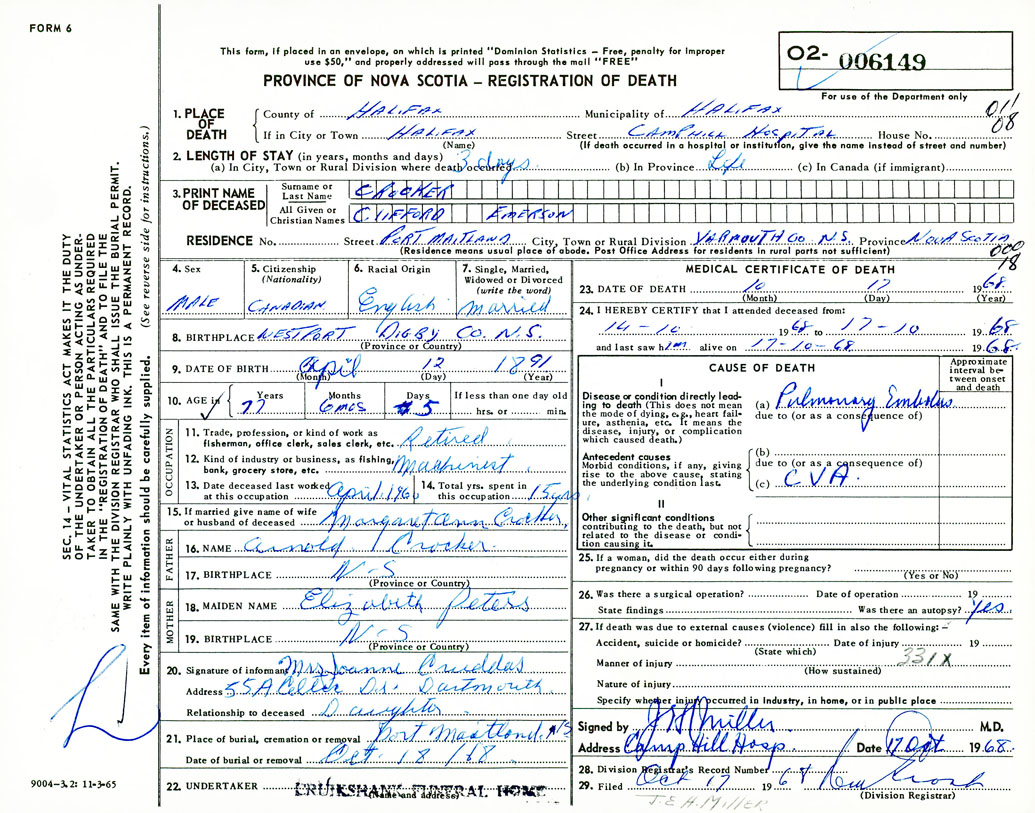 FORM 6
This form, if placed in an envelope, on which is printed "Dominion Statistics – Free, penalty for improper
use $50," and properly addressed will pass through the mail "FREE"
PROVINCE OF NOVA SCOTIA – REGISTRATION OF DEATH
02- 006149
For use of the Department only
011
08
1. PLACE OF DEATH
County of HALIFAX Municipality of HALIFAX
If in City or Town HALIFAX Street CAMPHILL HOSPITAL House No.
(Name) (If death occurred in a hospital or institution, give the name instead of street and number)
2. LENGTH OF STAY (in years, months and days)
(a) In City, Town or Rural Division where death occurred 3 days (b) In Province Life (c) In Canada (if immigrant)
3. PRINT NAME OF DECEASED
Surname or Last Name CROCKER
All Given or Christian Names CLIFFORD EMERSON
RESIDENCE No. Street PORT MAITLAND City, Town or Rural Division YARMOUTH CO. N.S. Province NOVA SCOTIA
(Residence means usual place of abode. Post Office Address for residents in rural parts not sufficient)
000
18
4. Sex MALE
5. Citizenship (Nationality) CANADIAN
6. Racial Origin English
7. Single, Married, Widowed or Divorced (write the word) married
8. BIRTHPLACE WESTPORT DIGBY CO. N.S.
(Province or Country)
9. DATE OF BIRTH April 12 1891
(Month) (Day) (Year)
10. AGE in Years Months Days If less than one day old
77 6 mos 5 hrs. or min.
OCCUPATION
11. Trade, profession, or kind of work as
fisherman, office clerk, sales clerk, etc. Retired
12. Kind of industry or business, as fishing,
bank, grocery store, etc. Machinist
13. Date deceased last worked
at this occupation April, 196
14. Total yrs. spent in
this occupation 15 yrs
15. If married give name of wife
or husband of deceased Margaret Ann Crocker
FATHER
16. NAME Arnold Crocker
17. BIRTHPLACE N-S
(Province or Country)
MOTHER
18. MAIDEN NAME Elizabeth Peters
19. BIRTHPLACE N-S
(Province or Country)
20. Signature of informant Mrs Joanne Cruddas
Address 55A Dr. Dartmouth
Relationship to deceased Daughter
21. Place of burial, cremation or removal Port Maitland N/S
Date of burial or removal Oct. 18/68
22. UNDERTAKER CRUIKSHANK FUNERAL HOME
(Name and address)
MEDICAL CERTIFICATE OF DEATH
23. DATE OF DEATH 10 17 1968
(Month) (Day) (Year)
24. I HEREBY CERTIFY that I attended deceased from:
14-10 1968 to 17-10 1968
and last saw him alive on 17-10-68 1968
CAUSE OF DEATH
Approximate interval between onset and death
I
Disease or condition directly lead-
ing to death (This does not mean
the mode of dying, e.g., heart fail-
ure, asthenia, etc. It means the
disease, injury, or complication
which caused death.)
(a) Pulmonary Embolus
due to (or as a consequence of)
Antecedent causes
Morbid conditions, if any, giving
rise to the above cause, stating
the underlying condition last.
(b)
due to (or as a consequence of)
(c) CVA.
II
Other significant conditions
contributing to the death, but not
related to the disease or condi-
tion causing it.
25. If a woman, did the death occur either during
pregnancy or within 90 days following pregnancy?
(Yes or No)
26. Was there a surgical operation? Date of operation 19
State findings Was there an autopsy? Yes
27. If death was due to external causes (violence) fill in also the following: –
Accident, suicide or homicide? Date of injury 19
(State which)
Manner of injury 331X
(How sustained)
Nature of injury
Specify whether injury occurred in industry, in home, or in public place
Signed by Miller M.D.
Address Camp Hill Hosp. Date 17 Oct 1968
28. Division Registrar's Record Number
29. Filed Oct 17 1968
(Division Registrar)
J.E.H. MILLER
SEC. 14 – VITAL STATISTICS ACT MAKES IT THE DUTY
OF THE UNDERTAKER OR PERSON ACTING AS UNDER-
TAKER TO OBTAIN ALL THE PARTICULARS REQUIRED
IN THE "REGISTRATION OF DEATH" AND TO FILE THE
SAME WITH THE DIVISION REGISTRAR WHO SHALL ISSUE THE BURIAL PERMIT.
WRITE PLAINLY WITH UNFADING INK. THIS IS A PERMANENT RECORD.
Every item of information should be carefully supplied. (See reverse side for instructions.)
9004-3.2: 11-3-65